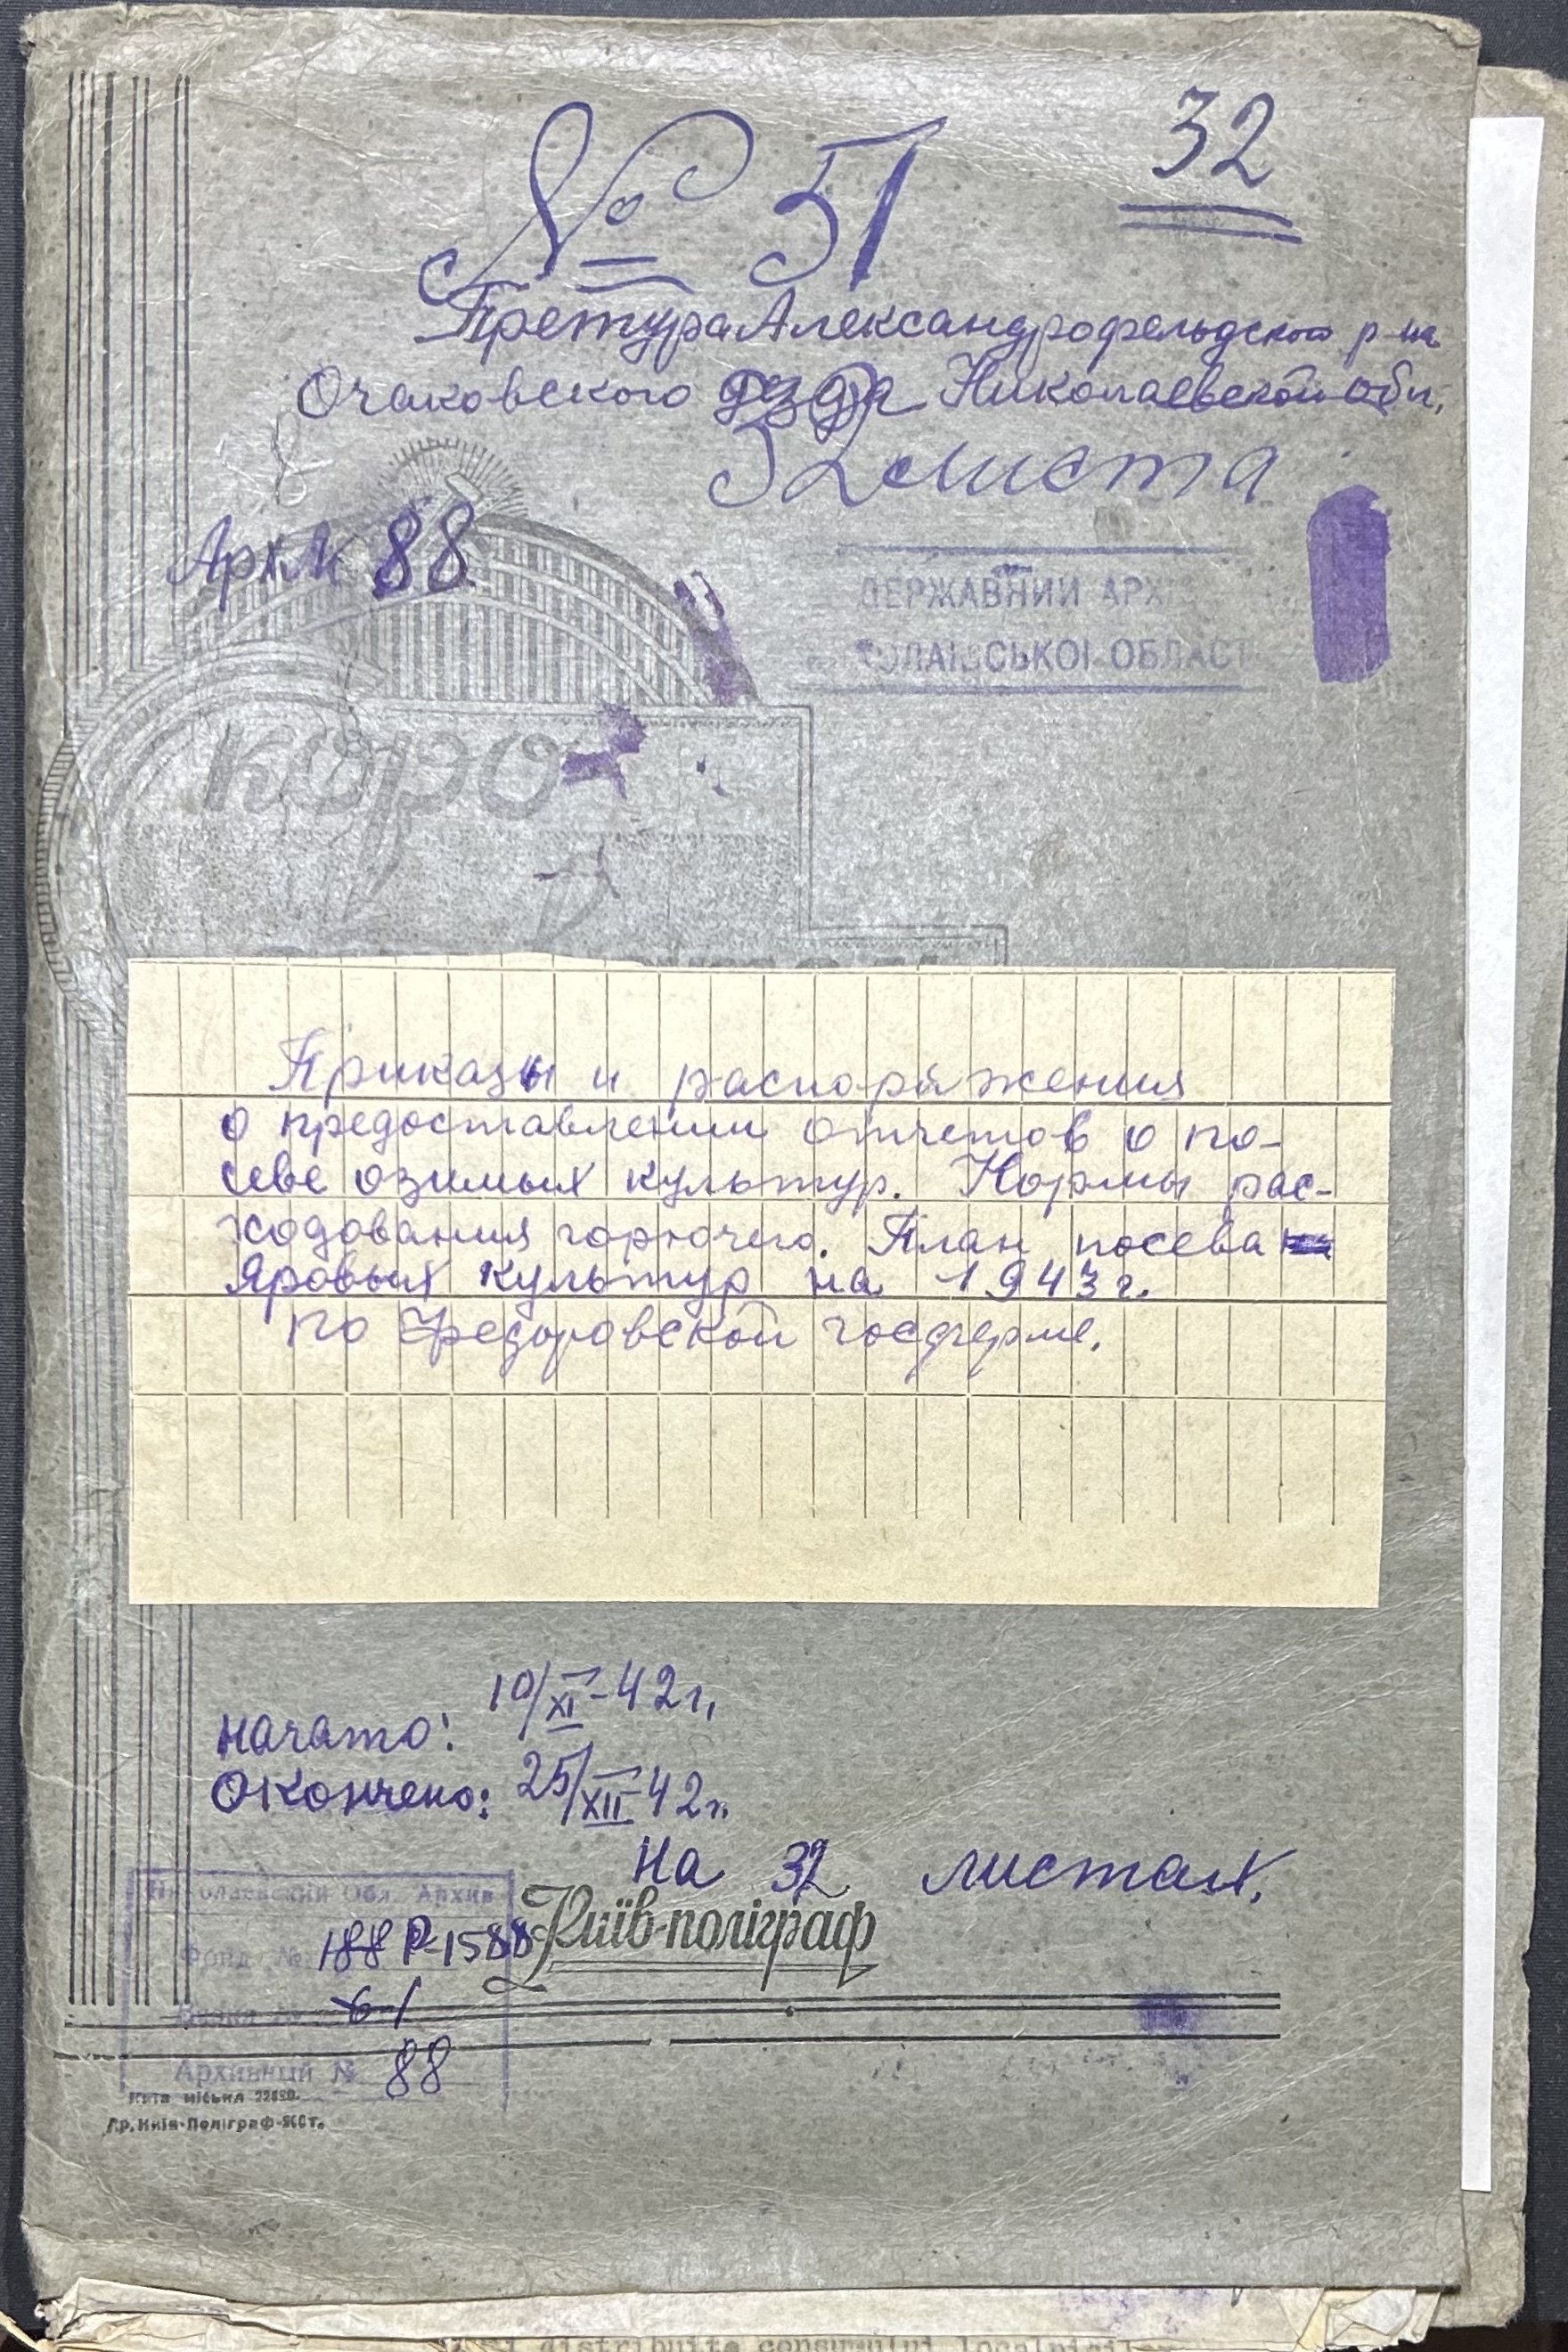 32
№ 51
Претура Александрофельдского р-на
Очаковского уезда Николаевской обл,
32 листа
Арх № 88
ДЕРЖАВНИЙ АРХ
ОЛАЇВСЬКОЇ ОБЛАСТ
Приказы и распоряжения
о предоставлении отчетов о по-
севе озимых культур. Нормы рас-
ходования горючего. План посева
яровых культур на 1943 г.
по Федоровской госферме.
начато: 10/XI-42 г.
Окончено: 25/XII-42 г.
На 32 листах.
Николаевский Обл. Архив
Фонд № 188 Р-1588
6 1
Архивный № 88
Київ-поліграф
Др. Київ-Поліграф
distribuite consumului